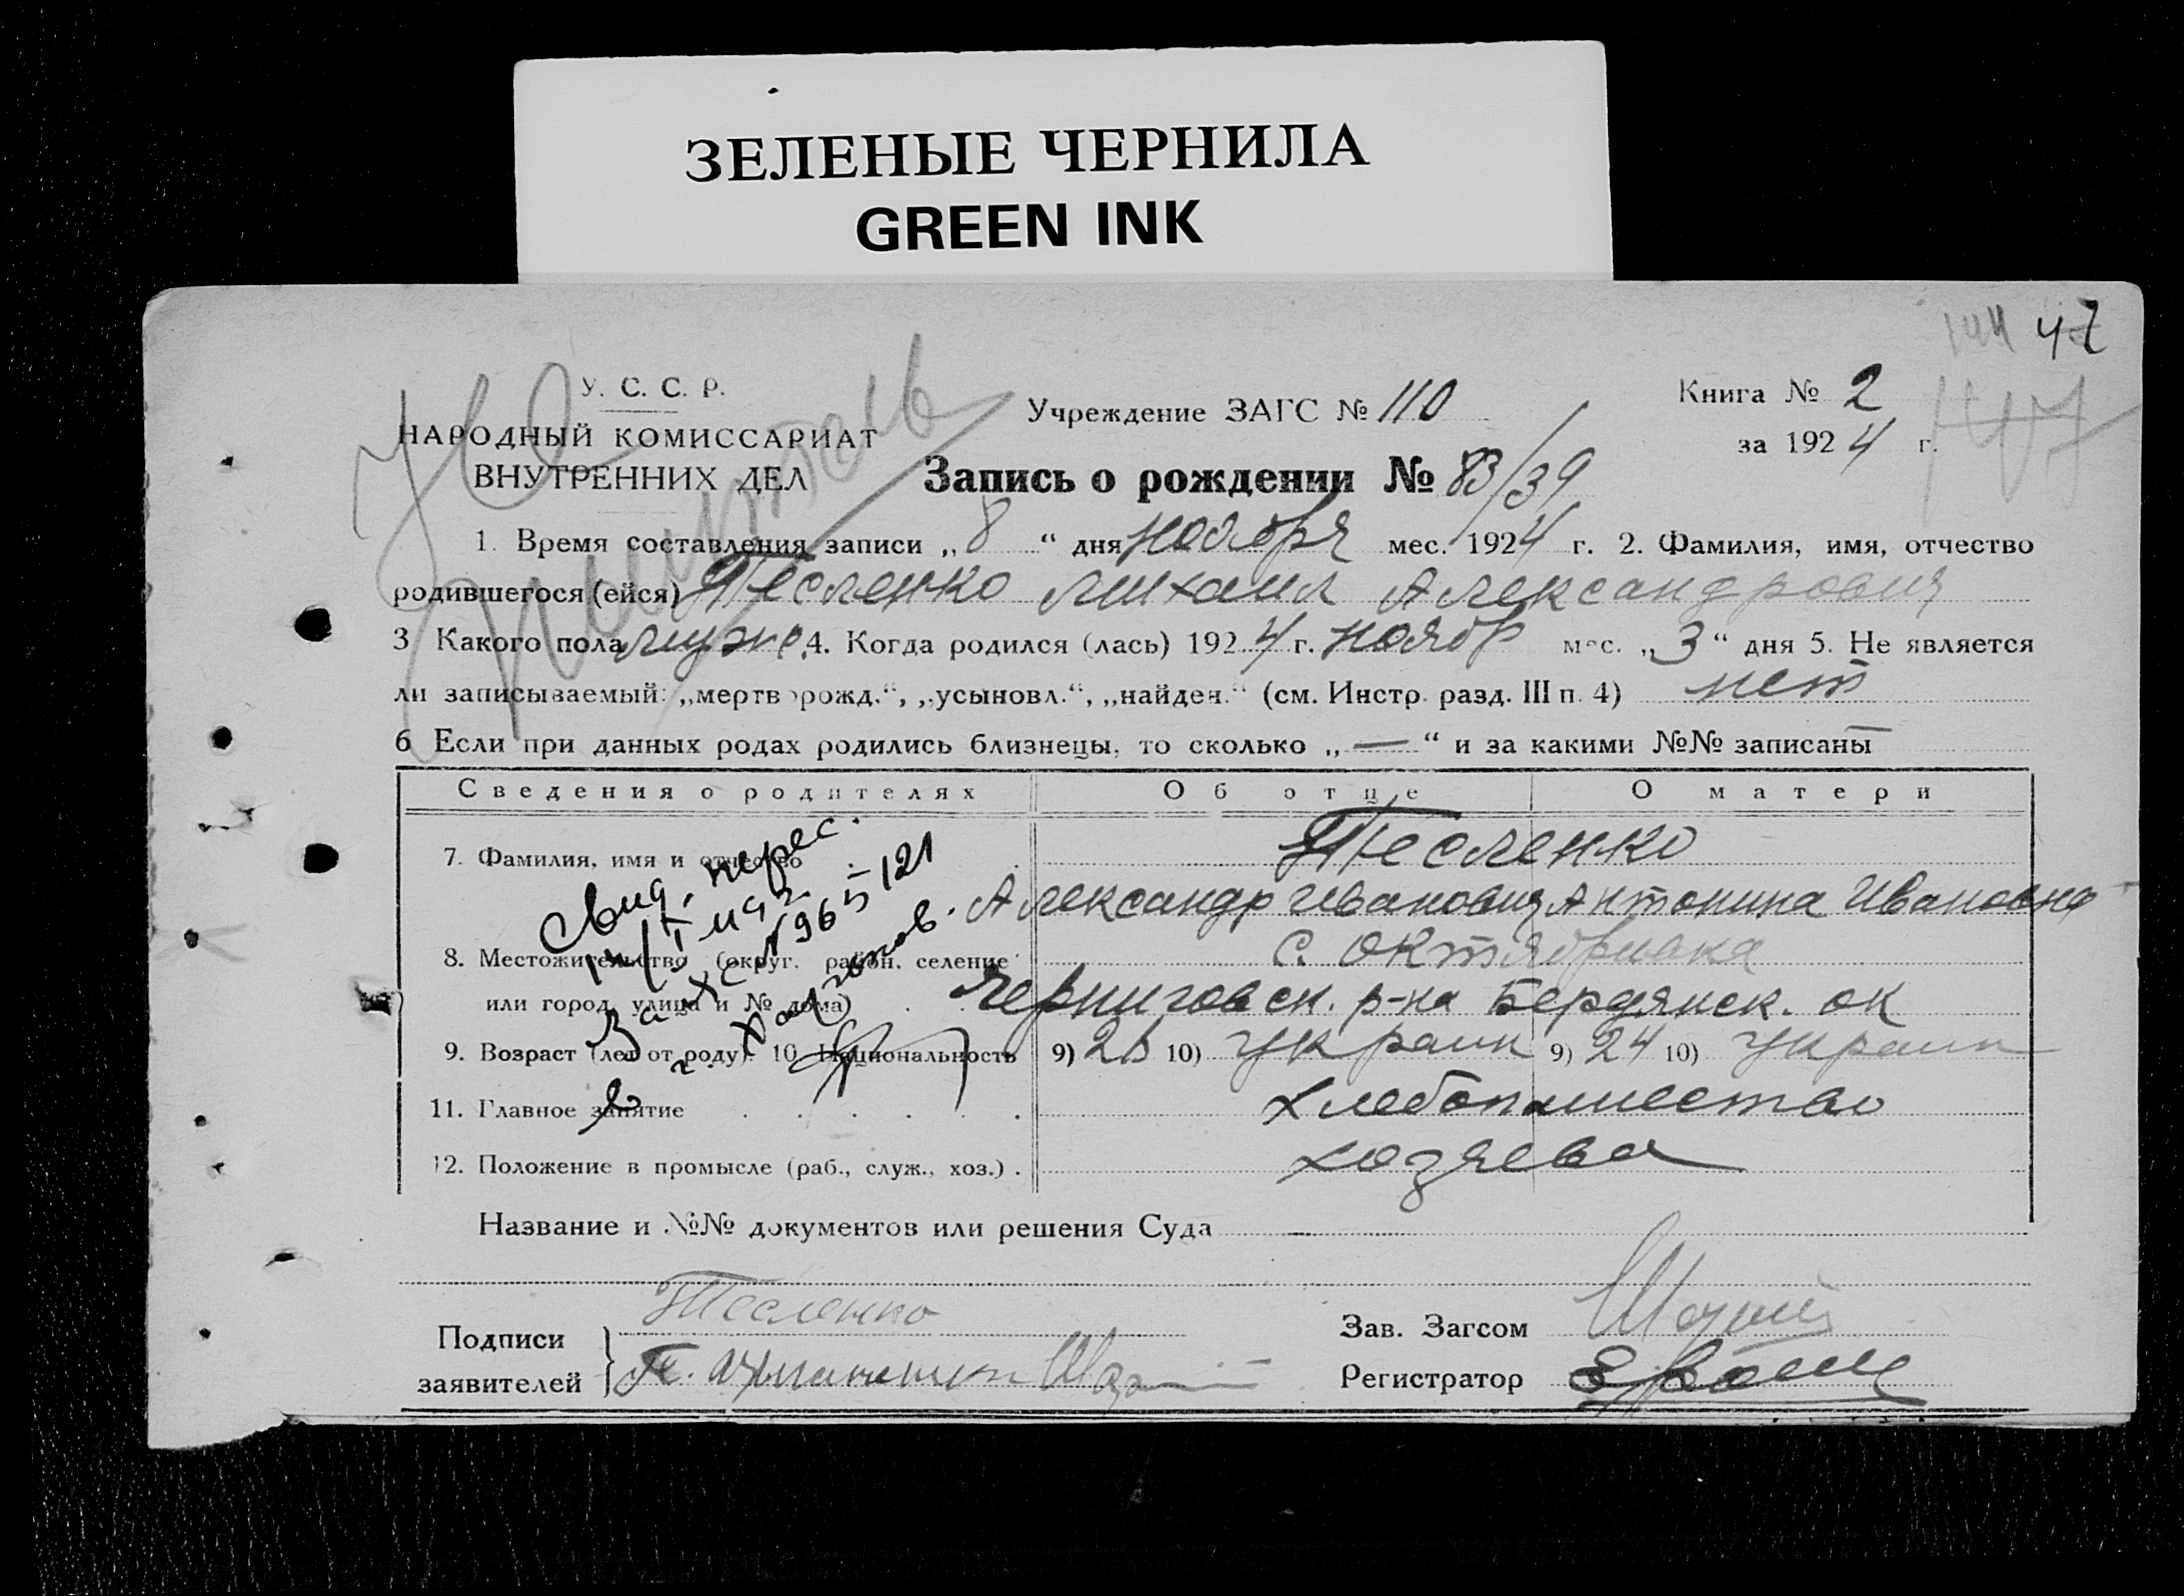 ЗЕЛЕНЫЕ ЧЕРНИЛА
GREEN INK
144 47
147
У. С. С. Р.
НАРОДНЫЙ КОМИССАРИАТ
ВНУТРЕННИХ ДЕЛ
Учреждение ЗАГС № 110
Книга № 2
за 1924 г.
Запись о рождении № 83/39
1. Время составления записи „ 8 “ дня ноября мес. 1924 г. 2. Фамилия, имя, отчество
родившегося (ейся) Тесленко Михаил Александрович
3 Какого пола мужс. 4. Когда родился (лась) 1924 г. ноябр мес. „ 3 “ дня 5. Не является
ли записываемый: „мертворожд.“, „усыновл.“, „найден.“ (см. Инстр. разд. III п. 4) нет
6 Если при данных родах родились близнецы, то сколько „ — “ и за какими №№ записаны —
Сведения о родителях Об отце О матери
7. Фамилия, имя и отчество Тесленко
Александр Иванович Антонина Ивановна
8. Местожительство (округ. район. селение с. Октябриака
или город, улица и № дома) Черниговск. р-на Бердянск. ок
9. Возраст (лет от роду) 10. Национальность 9) 26 10) Украин 9) 24 10) Украин
11. Главное занятие хлебопашество
12. Положение в промысле (раб., служ., хоз.) хозяева
Свид.
121
Название и №№ документов или решения Суда —
Подписи заявителей Тесленко
Зав. Загсом
Регистратор